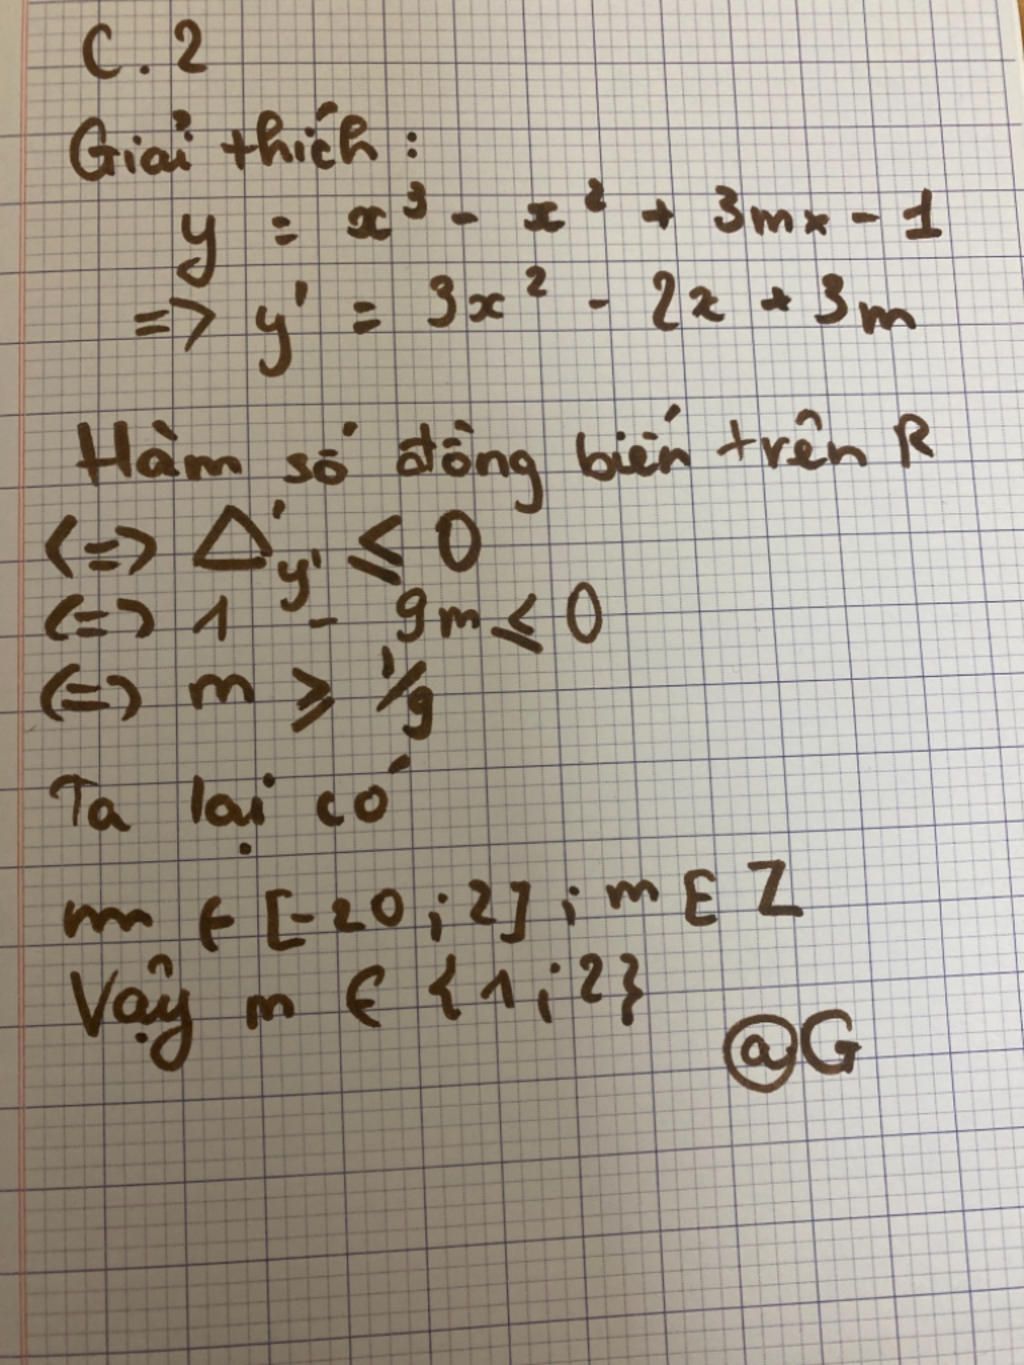 C. 2
Giải thích:
y = x³ - x² + 3mx - 1
=> y' = 3x² - 2x + 3m
Hàm số đồng biến trên R
(=) Δ'y' ≤ 0
(=) 1 - 9m ≤ 0
(=) m ≥ 1/9
Ta lại có
m ∈ [-20; 2]; m ∈ Z
Vậy m ∈ {1; 2}
@G